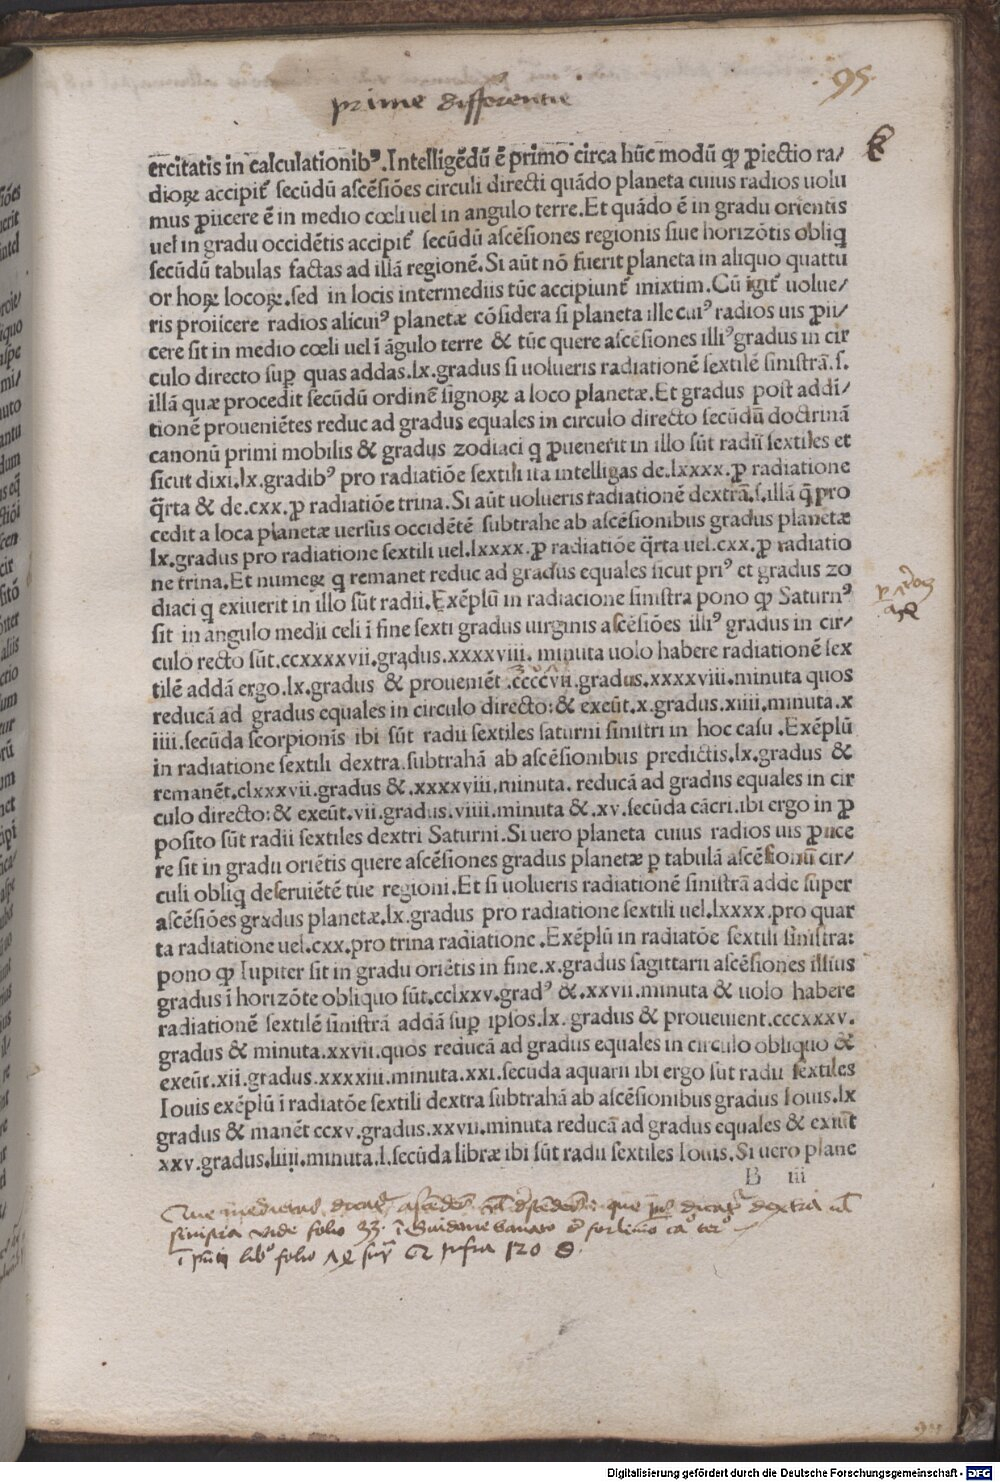 95
prime differentie
ercitatis in calculationibꝰ. Intelligēdū ē primo circa hūc modū ꝙ ꝓiectio ra/
dioꝝ accipit᷑ secūdū ascēsiōes circuli directi quādo planeta cuius radios uolu
mus ꝓiicere ē in medio cœli uel in angulo terre. Et quādo ē in gradu orientis
uel in gradu occidētis accipit᷑ secūdū ascēsiones regionis siue horizōtis obliq̄
secūdū tabulas factas ad illā regionē. Si aūt nō fuerit planeta in aliquo quattu
or hoꝝ locoꝝ. sed in locis intermediis tūc accipiunt᷑ mixtim. Cū igit᷑ uolue/
ris proiicere radios alicuiꝰ planetæ cōsidera si planeta ille cuiꝰ radios uis ꝓii/
cere sit in medio cœli uel ī āgulo terre & tūc quere ascēsiones illiꝰ gradus in cir
culo directo suꝑ quas addas .lx. gradus si uolueris radiationē sextilē sinistrā .s.
illā quæ procedit secūdū ordinē signoꝝ a loco planetæ. Et gradus post addi/
tionē proueniētes reduc ad gradus equales in circulo directo secūdū doctrinā
canonū primi mobilis & gradus zodiaci q ꝓuenerit in illo sūt radii sextiles et
sicut dixi .lx. gradibꝰ pro radiatiōe sextili ita intelligas de .lxxxx. ꝓ radiatione
q̄rta & de .cxx. ꝓ radiatiōe trina. Si aūt uolueris radiationē dextrā .s. illā q̄ pro
cedit a loca planetæ uersus occidētē subtrahe ab ascēsionibus gradus planetæ
lx. gradus pro radiatione sextili uel .lxxxx. ꝓ radiatiōe q̄rta uel .cxx. ꝓ radiatio
ne trina. Et numeꝝ q remanet reduc ad gradus equales sicut priꝰ et gradus zo
diaci q exiuerit in illo sūt radii. Exēplū in radiacione sinistra pono ꝙ Saturnꝰ
sit in angulo medii celi ī fine sexti gradus uirginis ascēsiōes illiꝰ gradus in cir/
culo recto sūt .ccxxxxvii. gradus .xxxxviii. minuta uolo habere radiationē sex
tilē addā ergo .lx. gradus & proueniēt .ccccvii. gradus .xxxxviii. minuta quos
reducā ad gradus equales in circulo directo: & exeūt .x. gradus .xiiii. minuta .x
iiii. secūda scorpionis ibi sūt radii sextiles saturni sinistri in hoc casu . Exēplū
in radiatione sextili dextra. subtrahā ab ascēsionibus predictis .lx. gradus &
remanēt .clxxxvii. gradus & .xxxxviii. minuta. reducā ad gradus equales in cir
culo directo: & exeūt .vii. gradus .viiii. minuta & .xv. secūda cācri. ibi ergo in ꝓ
posito sūt radii sextiles dextri Saturni. Si uero planeta cuius radios uis ꝓiice
re sit in gradu oriētis quere ascēsiones gradus planetæ p tabulā ascēsionū cir/
culi obliq̄ deseruiētē tue regioni. Et si uolueris radiationē sinistrā adde super
ascēsiōes gradus planetæ .lx. gradus pro radiatione sextili uel .lxxxx. pro quar
ta radiatione uel .cxx. pro trina radiatione . Exēplū in radiatōe sextili sinistra:
pono ꝙ Iupiter sit in gradu oriētis in fine .x. gradus sagittarii ascēsiones illius
gradus ī horizōte obliquo sūt .cclxxv. gradꝰ & .xxvii. minuta & uolo habere
radiationē sextilē sinistrā addā suꝑ ipsos .lx. gradus & proueuient .cccxxxv.
gradus & minuta .xxvii. quos reducā ad gradus equales in circulo obliquo &
exeūt .xii. gradus .xxxxiii. minuta .xxi. secūda aquarii ibi ergo sūt radii sextiles
Iouis exēplū ī radiatōe sextili dextra subtrahā ab ascēsionibus gradus Iouis .lx
gradus & manēt ccxv. gradus .xxvii. minuta reducā ad gradus equales & exiūt
xxv. gradus .liiii. minuta .l. secūda libræ ibi sūt radii sextiles Iouis. Si uero plane
B iii
Que medietas dicat᷑ ascēdēs uel descēdēs: que dicat᷑ dextra uel
sinistra vide folio 33. ī Guidone bonato
folio infra 120
Digitalisierung gefördert durch die Deutsche Forschungsgemeinschaft - DFG